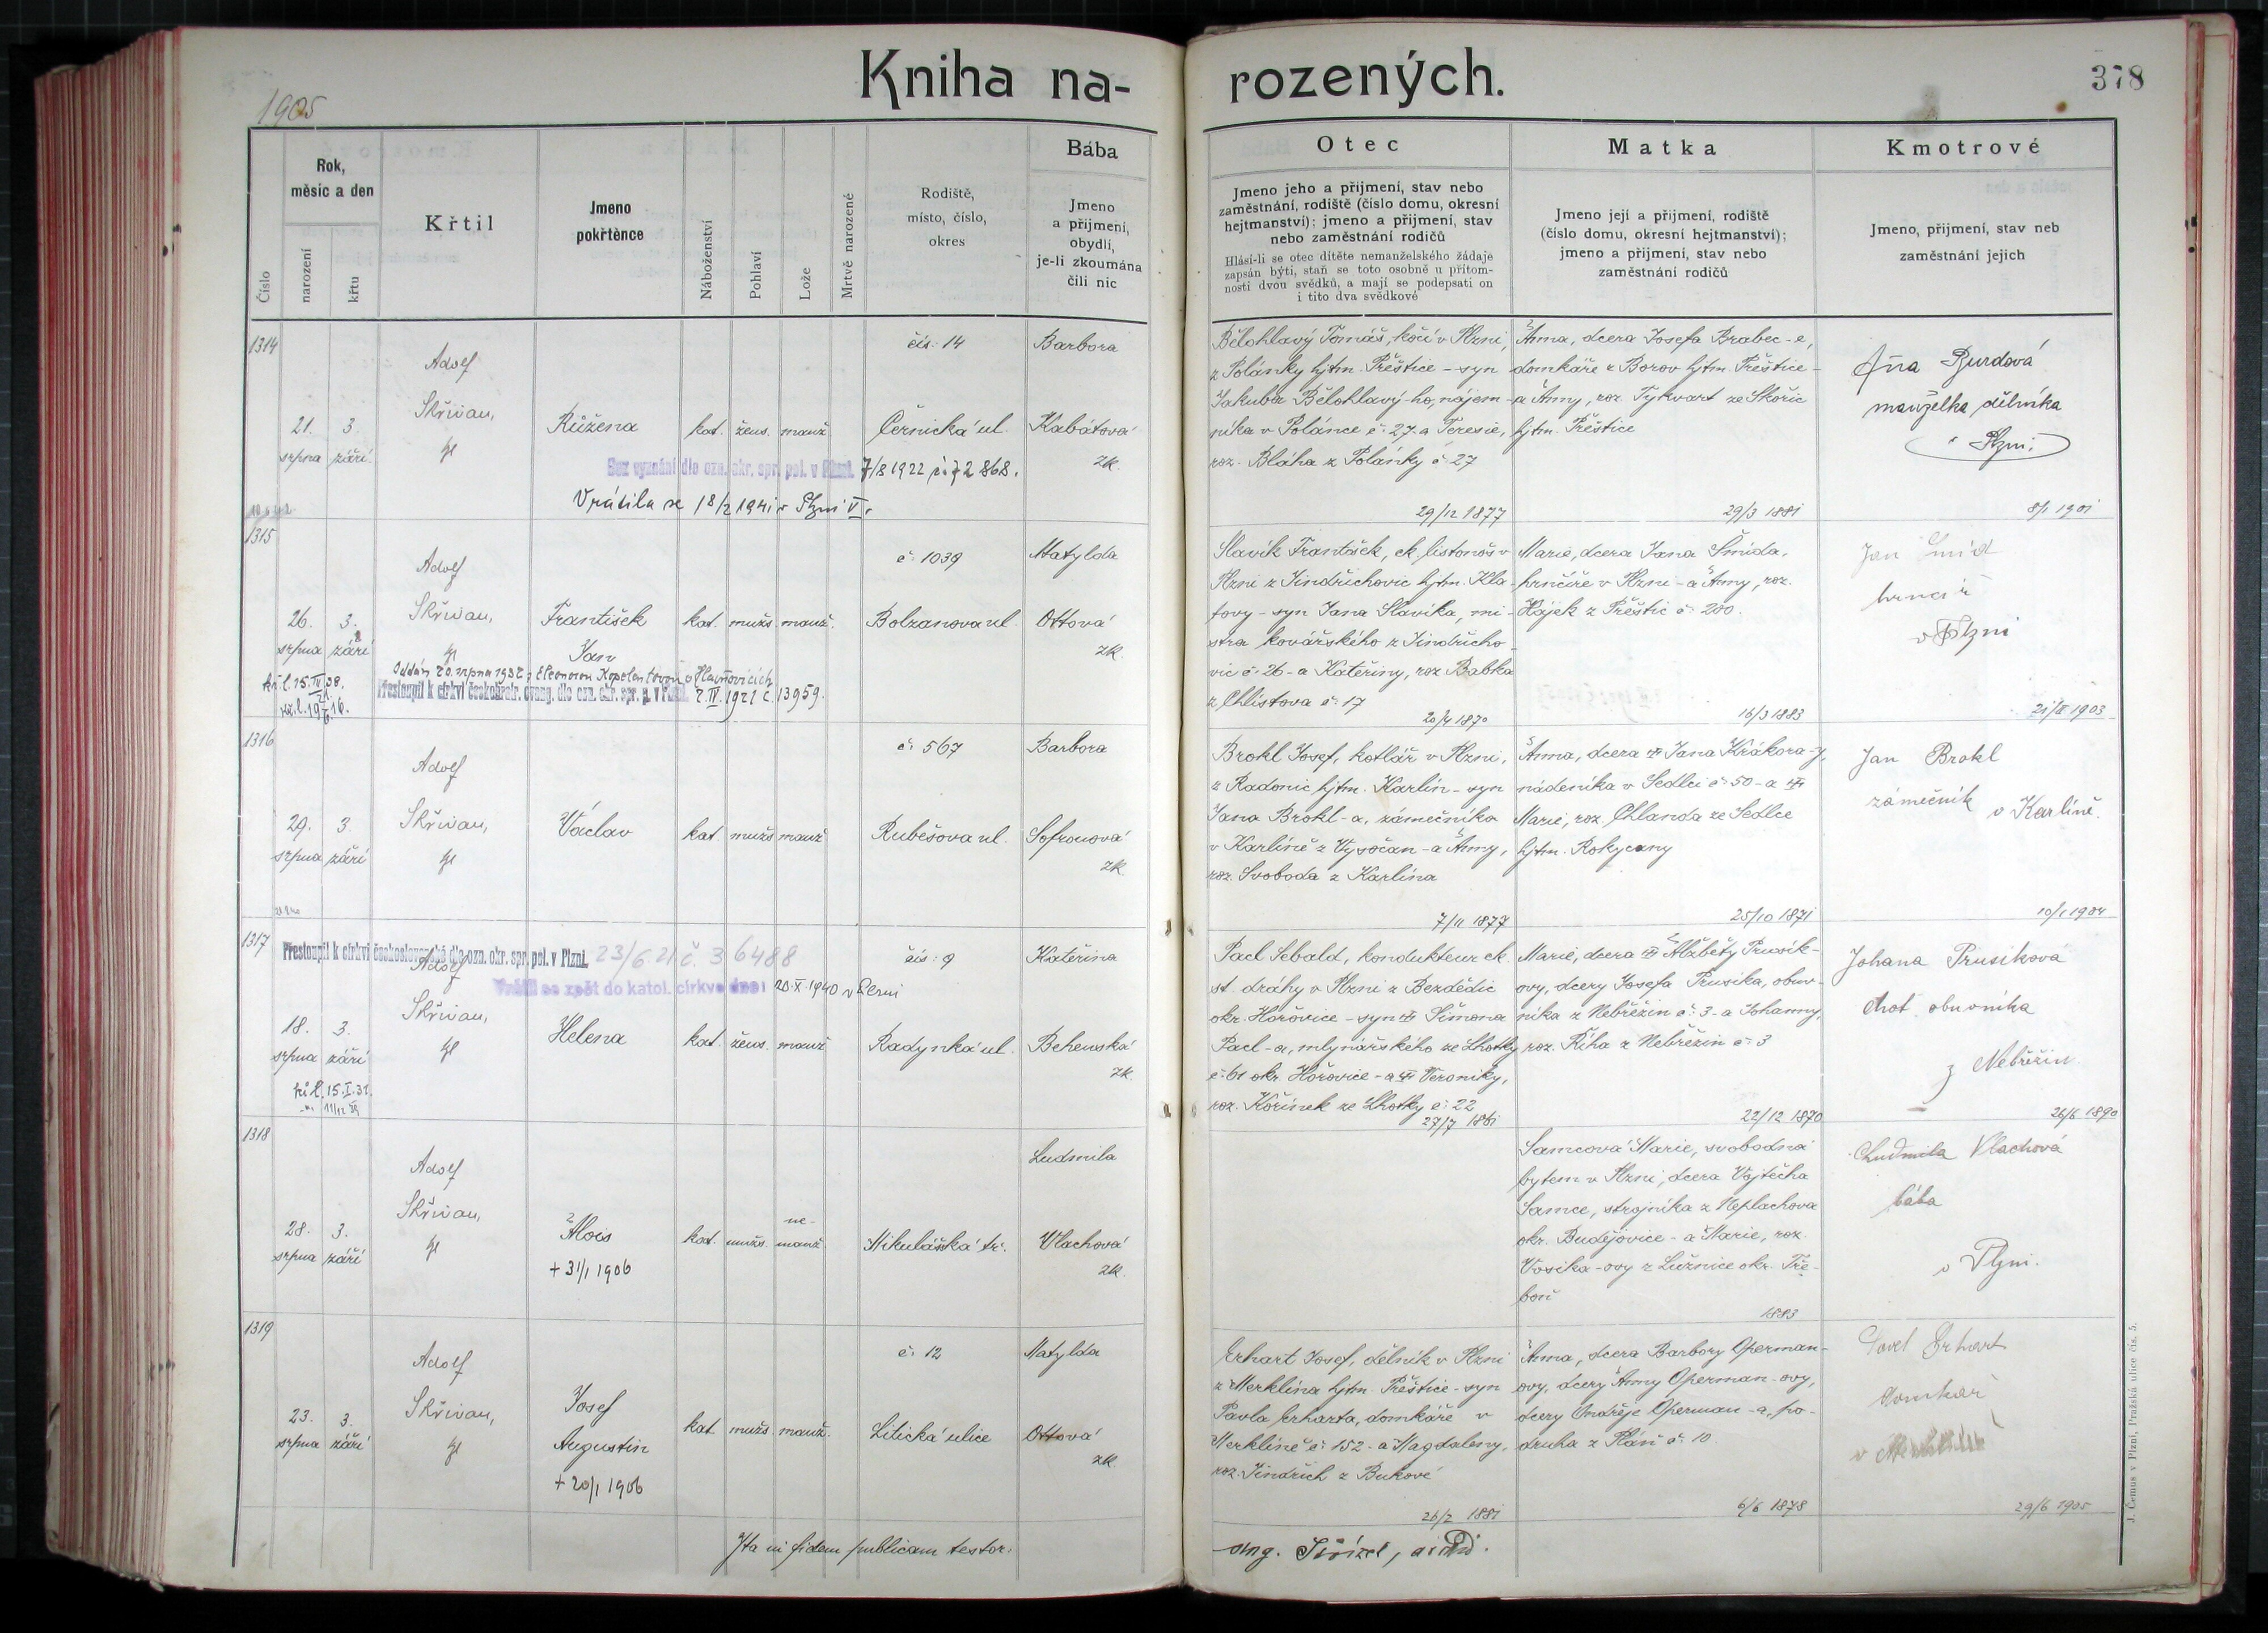 Kniha na-
rozených.
378
1905
Číslo
Rok,
měsíc a den
narození
křtu
Křtil
Jmeno
pokřtěnce
Náboženství
Pohlaví
Lože
Mrtvě narozené
Rodiště,
místo, číslo,
okres
Bába
Jmeno
a příjmení,
obydlí,
je-li zkoumána
čili nic
Otec
Jmeno jeho a příjmení, stav nebo
zaměstnání, rodiště (číslo domu, okresní
hejtmanství); jmeno a příjmení, stav
nebo zaměstnání rodičů
Hlásí-li se otec dítěte nemanželského žádaje
zapsán býti, staň se toto osobně u přítom-
nosti dvou svědků, a mají se podepsati on
i tito dva svědkové
Matka
Jmeno její a příjmení, rodiště
(číslo domu, okresní hejtmanství);
jmeno a příjmení, stav nebo
zaměstnání rodičů
Kmotrové
Jmeno, příjmení, stav neb
zaměstnání jejich
1314
21. srpna
3. září
Adolf
Skřivan,
Růžena
kat. žens. manž
čís: 14
Černická ul.
Barbora
Kabátová
zk.
Bez vyznání dle ozn. okr. spr. pol. v Plzni. 7/8 1922 č. j. 2868.
Vrátila se 18/2 1941 v Plzni V.
Bělohlavý Tomáš, kočí v Plzni,
z Polánky hjtm. Přeštice - syn
Jakuba Bělohlavý-ho, nájem-
níka v Polánce č. 27. a Terezie,
roz. Bláha z Polánky č. 27
29/12 1877
Anna, dcera Josefa Brabec-e,
domkáře z Borov hjtm. Přeštice -
a Anny, roz. Tykvart ze Skořic
hjtm. Přeštice
29/3 1881
Aña Burdová
manželka dělníka
v Plzni.
8/1 1901
1315
26. srpna
3. září
Adolf
Skřivan,
František
Jan
kat. mužs. manž.
č. 1039
Bolzanova ul.
Matylda
Ottová
zk.
Oddán 20. srpna 1932 s Eleonorou v Hlavňovicích
kř. l. 15. IV 38.
Přestoupil k církvi českobratr. evang. dle ozn. okr. spr. p. v Plzni. 2. IV. 1921 č. 13959.
Slavík František, ck. listonoš v
Plzni z Jindřichovic hjtm. Kla-
tovy - syn Jana Slavíka, mi-
stra kovářského z Jindřicho-
vic č. 26 - a Kateřiny, roz. Babka
z Chlístova č. 17
20/4 1870
Marie, dcera Jana Šmída,
hrnčíře v Plzni - a Anny, roz.
Hájek z Přeštic č. 280.
16/3 1883
Jan Šmíd
hrnčíř
v Plzni
21/II 1903
1316
29. srpna
3. září
Adolf
Skřivan,
Václav
kat. mužs. manž
č. 567
Rubešova ul.
Barbora
Sofronová
zk.
Brokl Josef, kotlář v Plzni,
z Radonic hjtm. Karlín - syn
Jana Brokl-a, zámečníka
v Karlíně z Vysočan - a Anny,
roz. Svoboda z Karlína
7/11 1877
Anna, dcera Jana Krákora-y,
nádeníka v Sedlci č. 50 - a
Marie, roz. Chlanda ze Sedlce
hjtm. Rokycany
25/10 1871
Jan Brokl
zámečník
v Karlíně.
10/1 1904
1317
Přestoupil k církvi československé dle ozn. okr. spr. pol. v Plzni. 23/6. 21. č. 36488
Vrátil se zpět do katol. církve dne: 20. X. 1940 v Plzni
18. srpna
3. září
Adolf
Skřivan,
Helena
kat. žens. manž
čís: 9
Radynká ul.
Kateřina
Behenská
zk.
kř. l. 15. I. 31.
Pacl Sebald, kondukteur ck.
st. dráhy v Plzni z Bezdědic
okr. Hořovice - syn Šimona
Pacl-a, mlynářského ze Lhotky
č. 61 okr. Hořovice - a Veroniky,
roz. Kořínek ze Lhotky č. 22
27/7 1861
Marie, dcera Alžběty Prusík-
ovy, dcery Josefa Prusíka, obuv-
níka z Nebřezin č. 3 - a Johanny,
roz. Říha z Nebřezin č. 3
22/12 1870
Johana Prusíkova
choť obuvníka
z Nebřezin.
26/6 1890
1318
28. srpna
3. září
Adolf
Skřivan,
Alois
+ 31/1 1906
kat. mužs. ne-
manž
Mikulášská tř.
Ludmila
Vlachová
zk.
Samcová Marie, svobodná
bytem v Plzni, dcera Vojtěcha
Samce, strojníka z Neplachova
okr. Budějovice - a Marie, roz.
Vosika-ovy z Lužnice okr. Tře-
boň
1883
Ludmila Vlachová
bába
v Plzni.
1319
23. srpna
3. září
Adolf
Skřivan,
Josef
Augustin
+ 20/1 1906
kat. mužs. manž.
č. 12
Litická ulice
Matylda
Ottová
zk.
Erhart Josef, dělník v Plzni
z Merklína hjtm. Přeštice - syn
Pavla Erharta, domkáře v
Merklíně č. 152 - a Magdaleny,
roz. Jindřich z Bukové
26/2 1881
Anna, dcera Barbory Operman-
ovy, dcery Anny Operman-ovy,
dcery Ondřeje Operman-a, po-
druha z Pláň č. 10.
6/6 1878
Pavel Erhart
domkář
v
29/6 1905
Ita in fidem publicam testor:
J. Čemus v Plzni, Pražská ulice čís. 5.